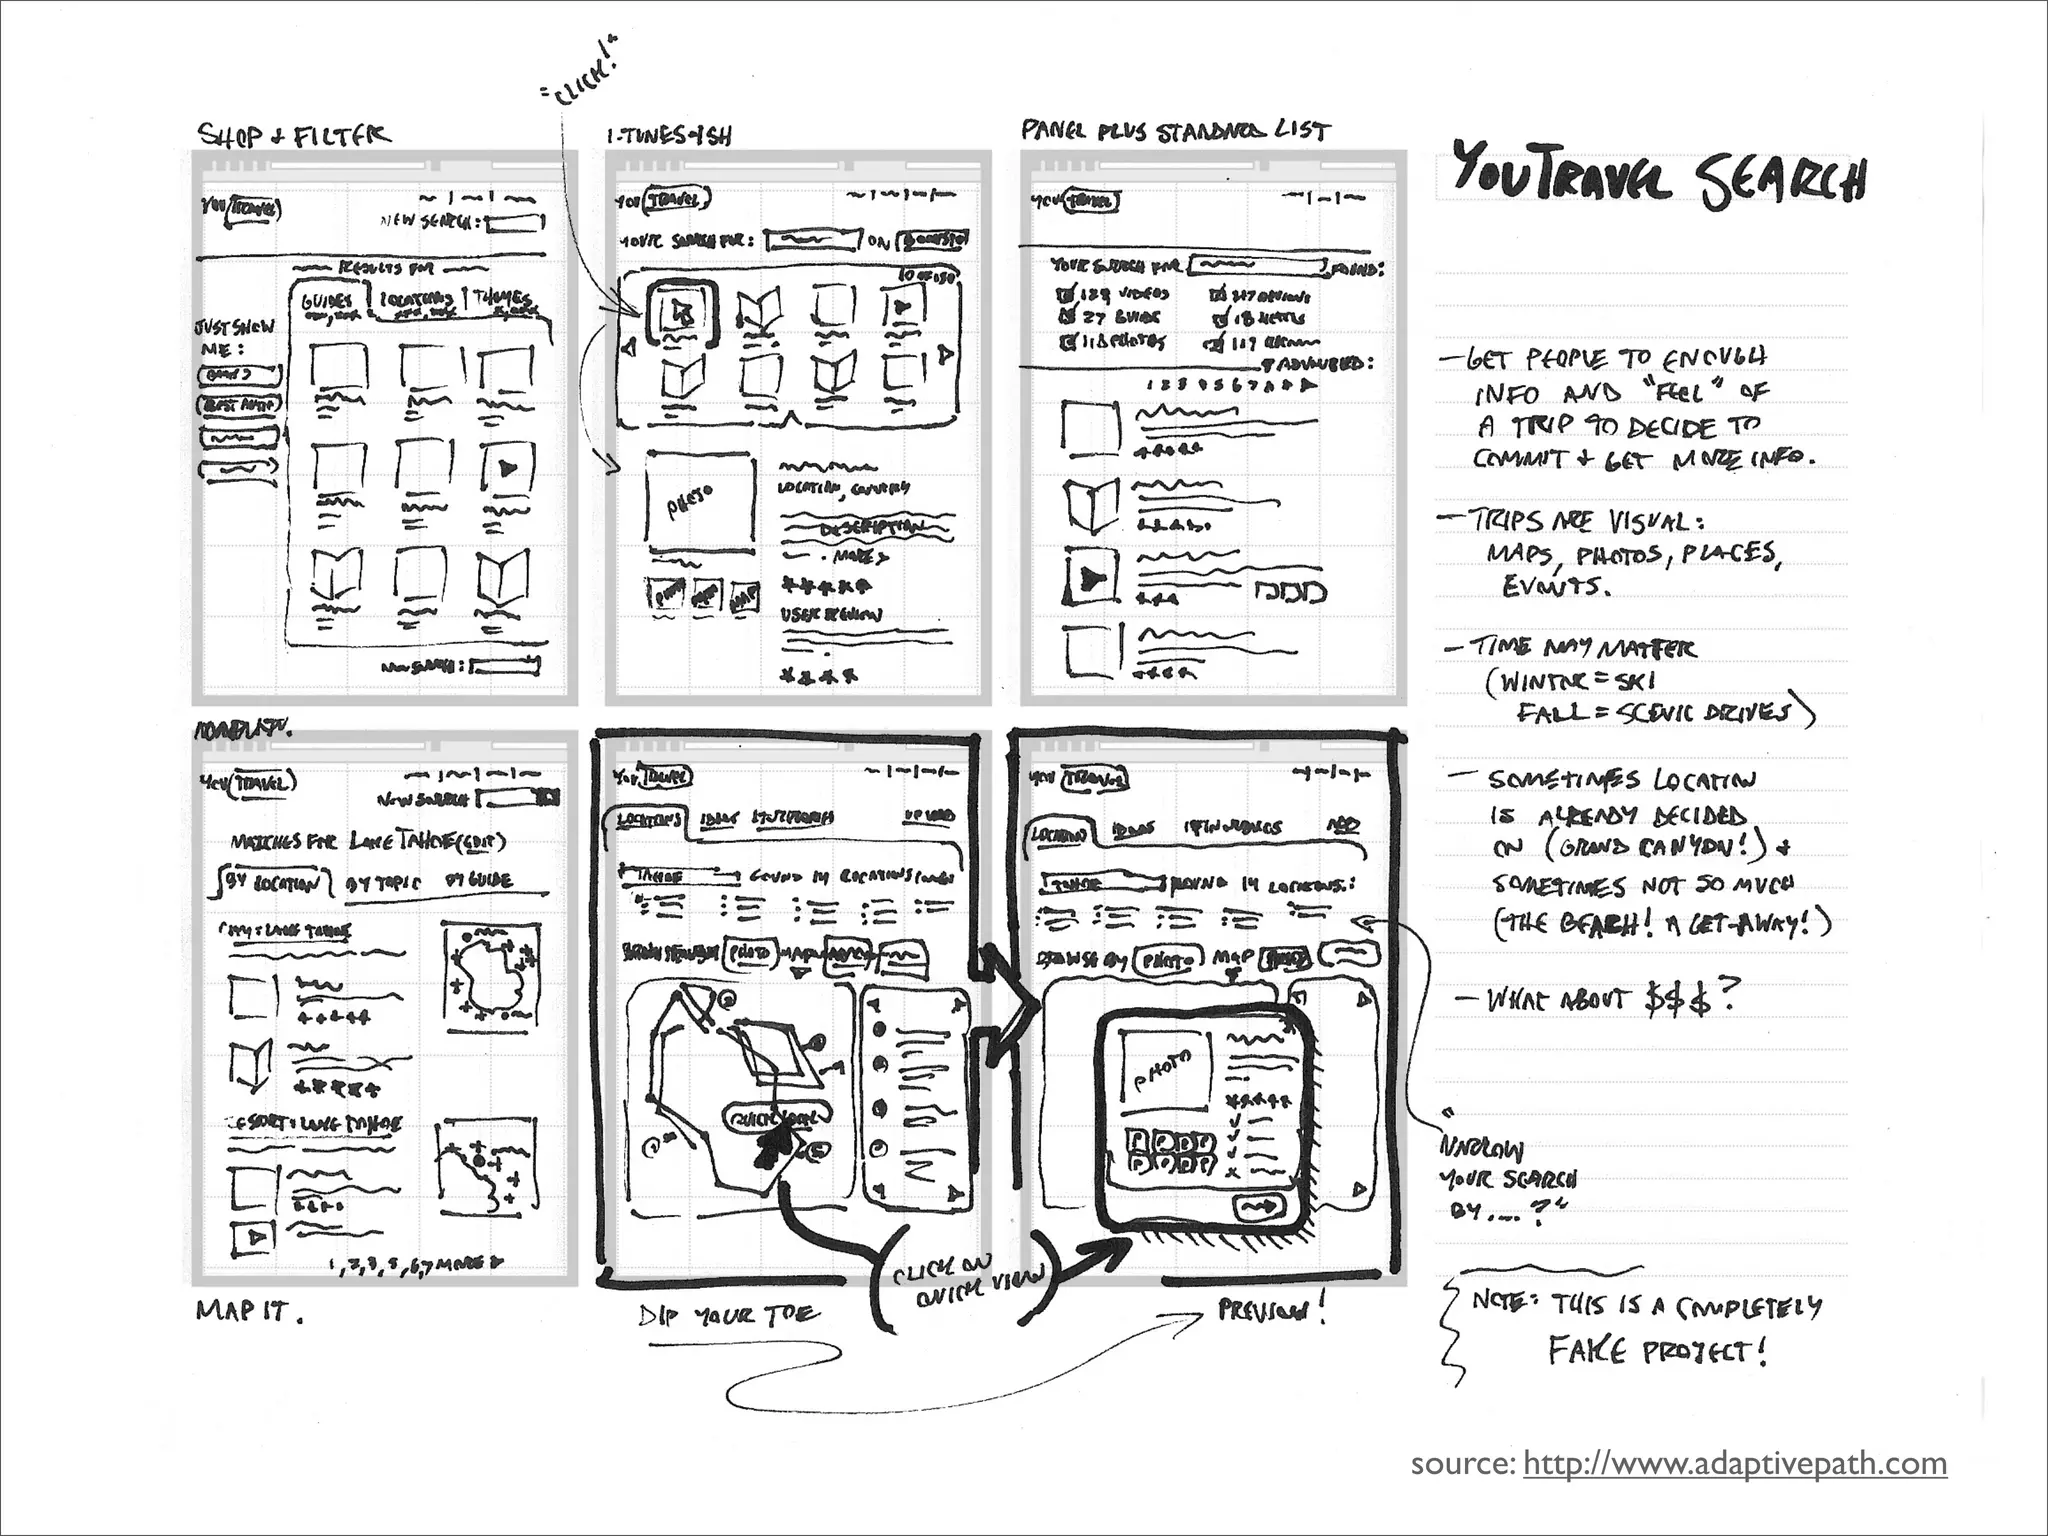 "CLICK!"
SHOP + FILTER
YOU TRAVEL
NEW SEARCH:
RESULTS FOR
GUIDES LOCATIONS THEMES
JUST SHOW
ME:
NEW SEARCH:
I-TUNES-ISH
YOU TRAVEL
YOUR SEARCH FOR: ON
PHOTO
LOCATION, COUNTRY
DESCRIPTION
MORE >
USER REVIEW
PHOTO MAP
PANEL PLUS STANDARD LIST
YOU TRAVEL
YOUR SEARCH FOR FOUND:
VIDEOS
27 GUIDE
PHOTOS
ADVANCED:
1 2 3 4 5 6 7 8
YOU TRAVEL
NEW SEARCH
MATCHES FOR LAKE TAHOE (EDIT)
BY LOCATION BY TOPIC BY GUIDE
CITY: LAKE TAHOE
RESORT: LAKE TAHOE
MORE
MAP IT.
YOU TRAVEL
LOCATIONS IDEAS ITINERARIES UPLOAD
TAHOE FOUND 14 LOCATIONS
PHOTO MAP
QUICK LOOK
(CLICK ON
QUICK VIEW)
DIP YOUR TOE
YOU TRAVEL
LOCATIONS IDEAS ITINERARIES ADD
TAHOE FOUND 14 LOCATIONS:
BROWSE BY PHOTO MAP
PHOTO
PREVIEW!
YOUTRAVEL SEARCH
- GET PEOPLE TO ENOUGH
INFO AND "FEEL" OF
A TRIP TO DECIDE TO
COMMIT + GET MORE INFO.
- TRIPS ARE VISUAL:
MAPS, PHOTOS, PLACES,
EVENTS.
- TIME MAY MATTER
(WINTER = SKI
FALL = SCENIC DRIVES)
- SOMETIMES LOCATION
IS ALREADY DECIDED
ON (GRAND CANYON!) +
SOMETIMES NOT SO MUCH
(THE BEACH! A GET-AWAY!)
- WHAT ABOUT $$$?
"NARROW
YOUR SEARCH
BY.... ?"
NOTE: THIS IS A COMPLETELY
FAKE PROJECT!
source: http://www.adaptivepath.com